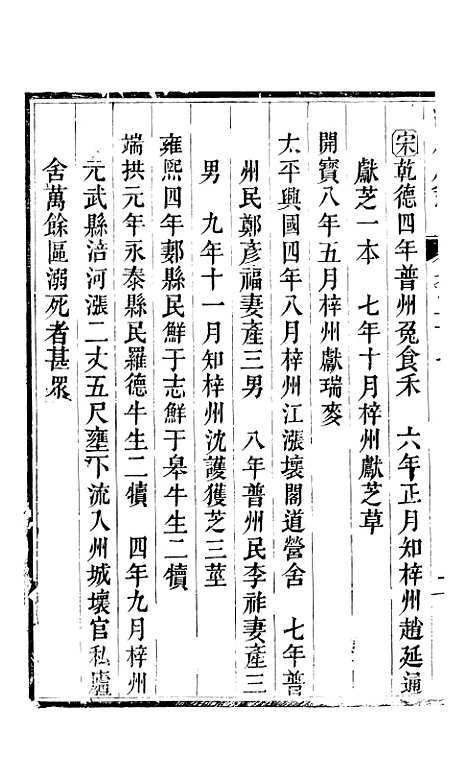 宋乾德四年普州兔食禾　六年正月知梓州趙延通
獻芝一本　七年十月梓州獻芝草
開寶八年五月梓州獻瑞麥
太平興國四年八月梓州江漲壞閣道營舍　七年普
州民鄭彥福妻產三男　八年普州民李祚妻產三
男　九年十一月知梓州沈護獲芝三莖
雍熙四年郪縣民鮮于志鮮于皋牛生二犢
端拱元年永泰縣民羅德牛生二犢　四年九月梓州
元武縣涪河漲二丈五尺壅下流入州城壞官私廬
舍萬餘區溺死者甚眾